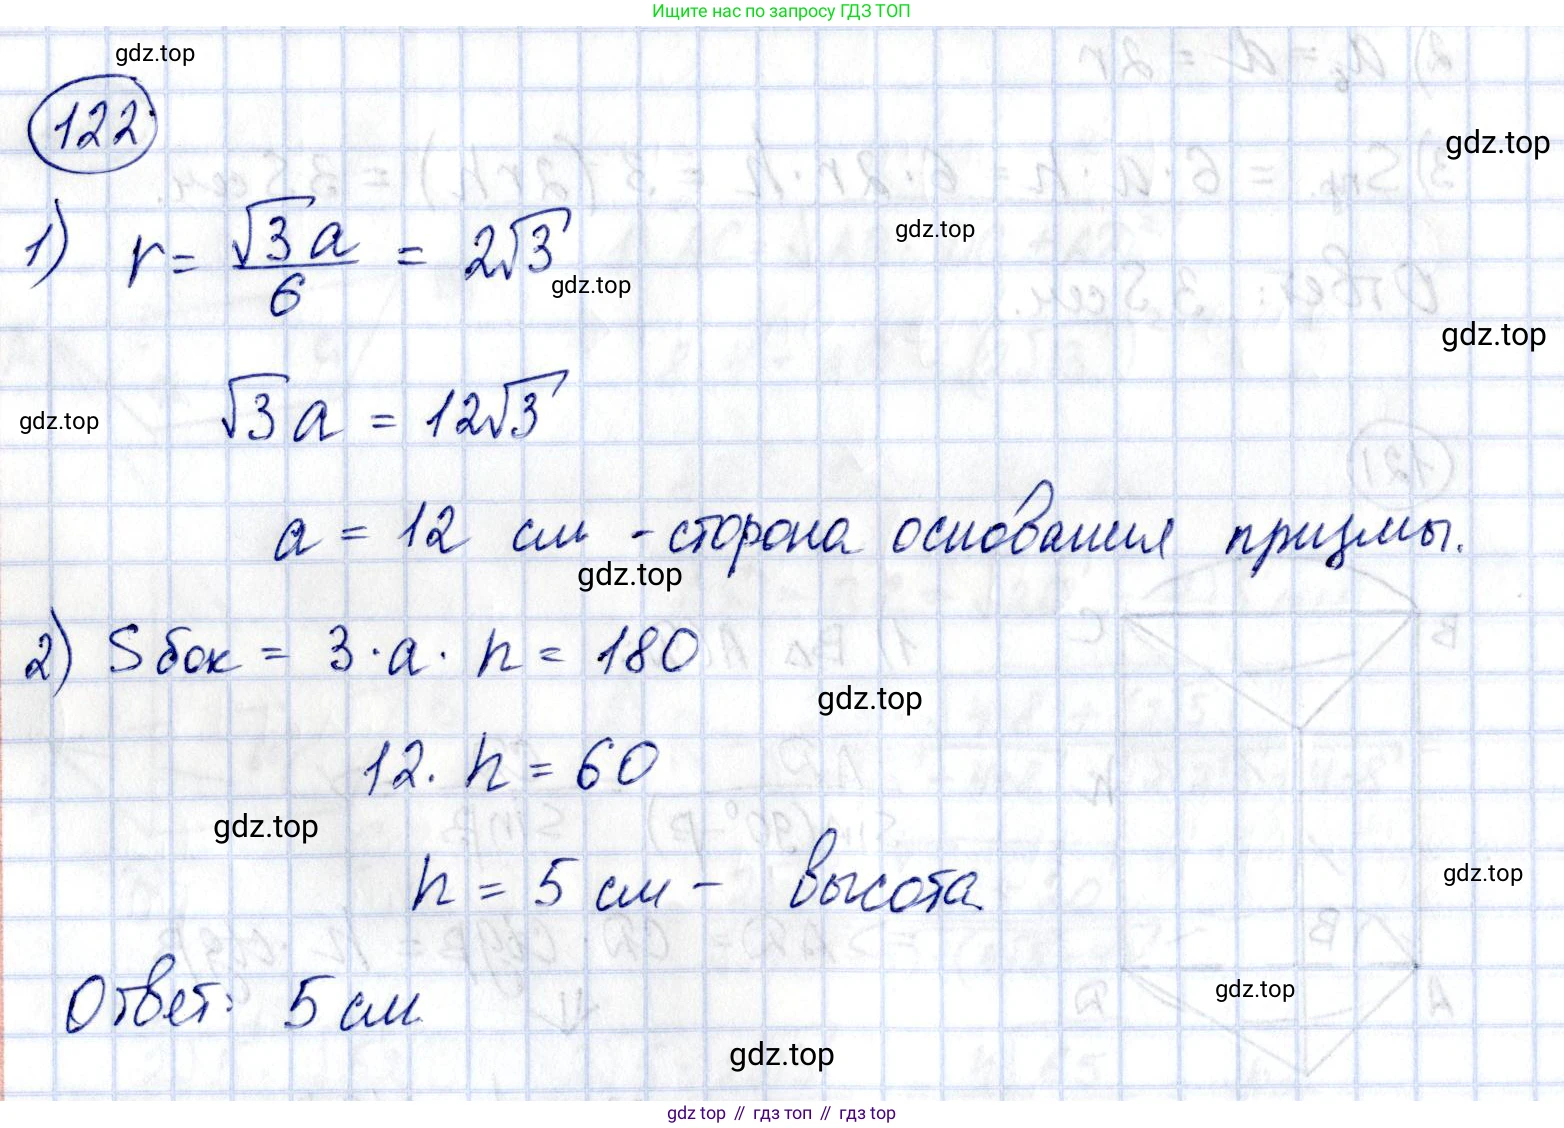 Ищите нас по запросу ГДЗ ТОП
gdz.top
122
gdz.top
1) r = √3a/6 = 2√3
gdz.top
gdz.top
gdz.top
√3a = 12√3
gdz.top
a = 12 см - сторона основания призмы.
gdz.top
2) Sбок = 3·a·h = 180
gdz.top
12·h = 60
gdz.top
h = 5 см - высота
gdz.top
Ответ: 5 см.
gdz.top
gdz.top
gdz top // гдз топ // гдз top